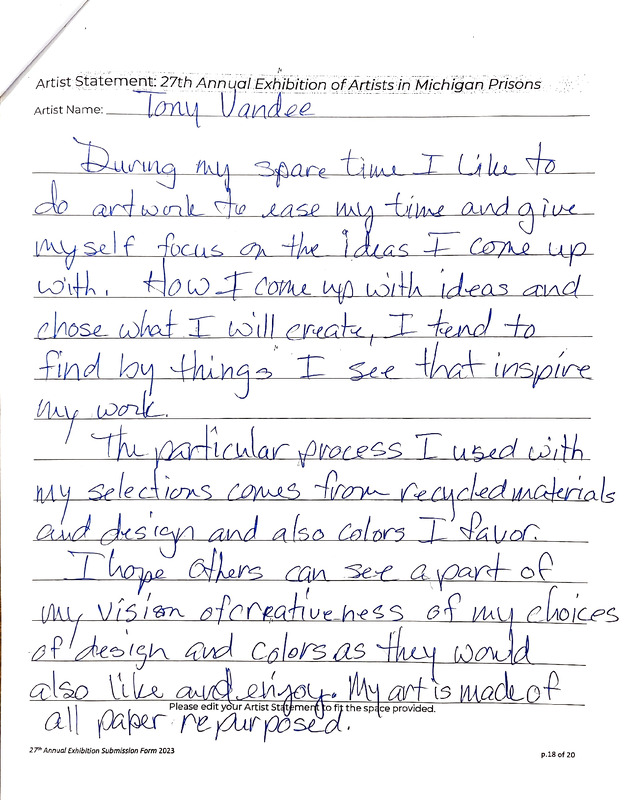 Artist Statement: 27th Annual Exhibition of Artists in Michigan Prisons
Artist Name: Tony Vandee
During my spare time I like to
do artwork to ease my time and give
myself focus on the ideas I come up
with. How I come up with ideas and
chose what I will create, I tend to
find by things I see that inspire
my work.
The particular process I used with
my selections comes from recycled materials
and design and also colors I favor.
I hope others can see a part of
my vision of creativeness of my choices
of design and colors as they would
also like and enjoy. My art is made of
Please edit your Artist Statement to fit the space provided.
all paper repurposed.
27th Annual Exhibition Submission Form 2023
p.18 of 20